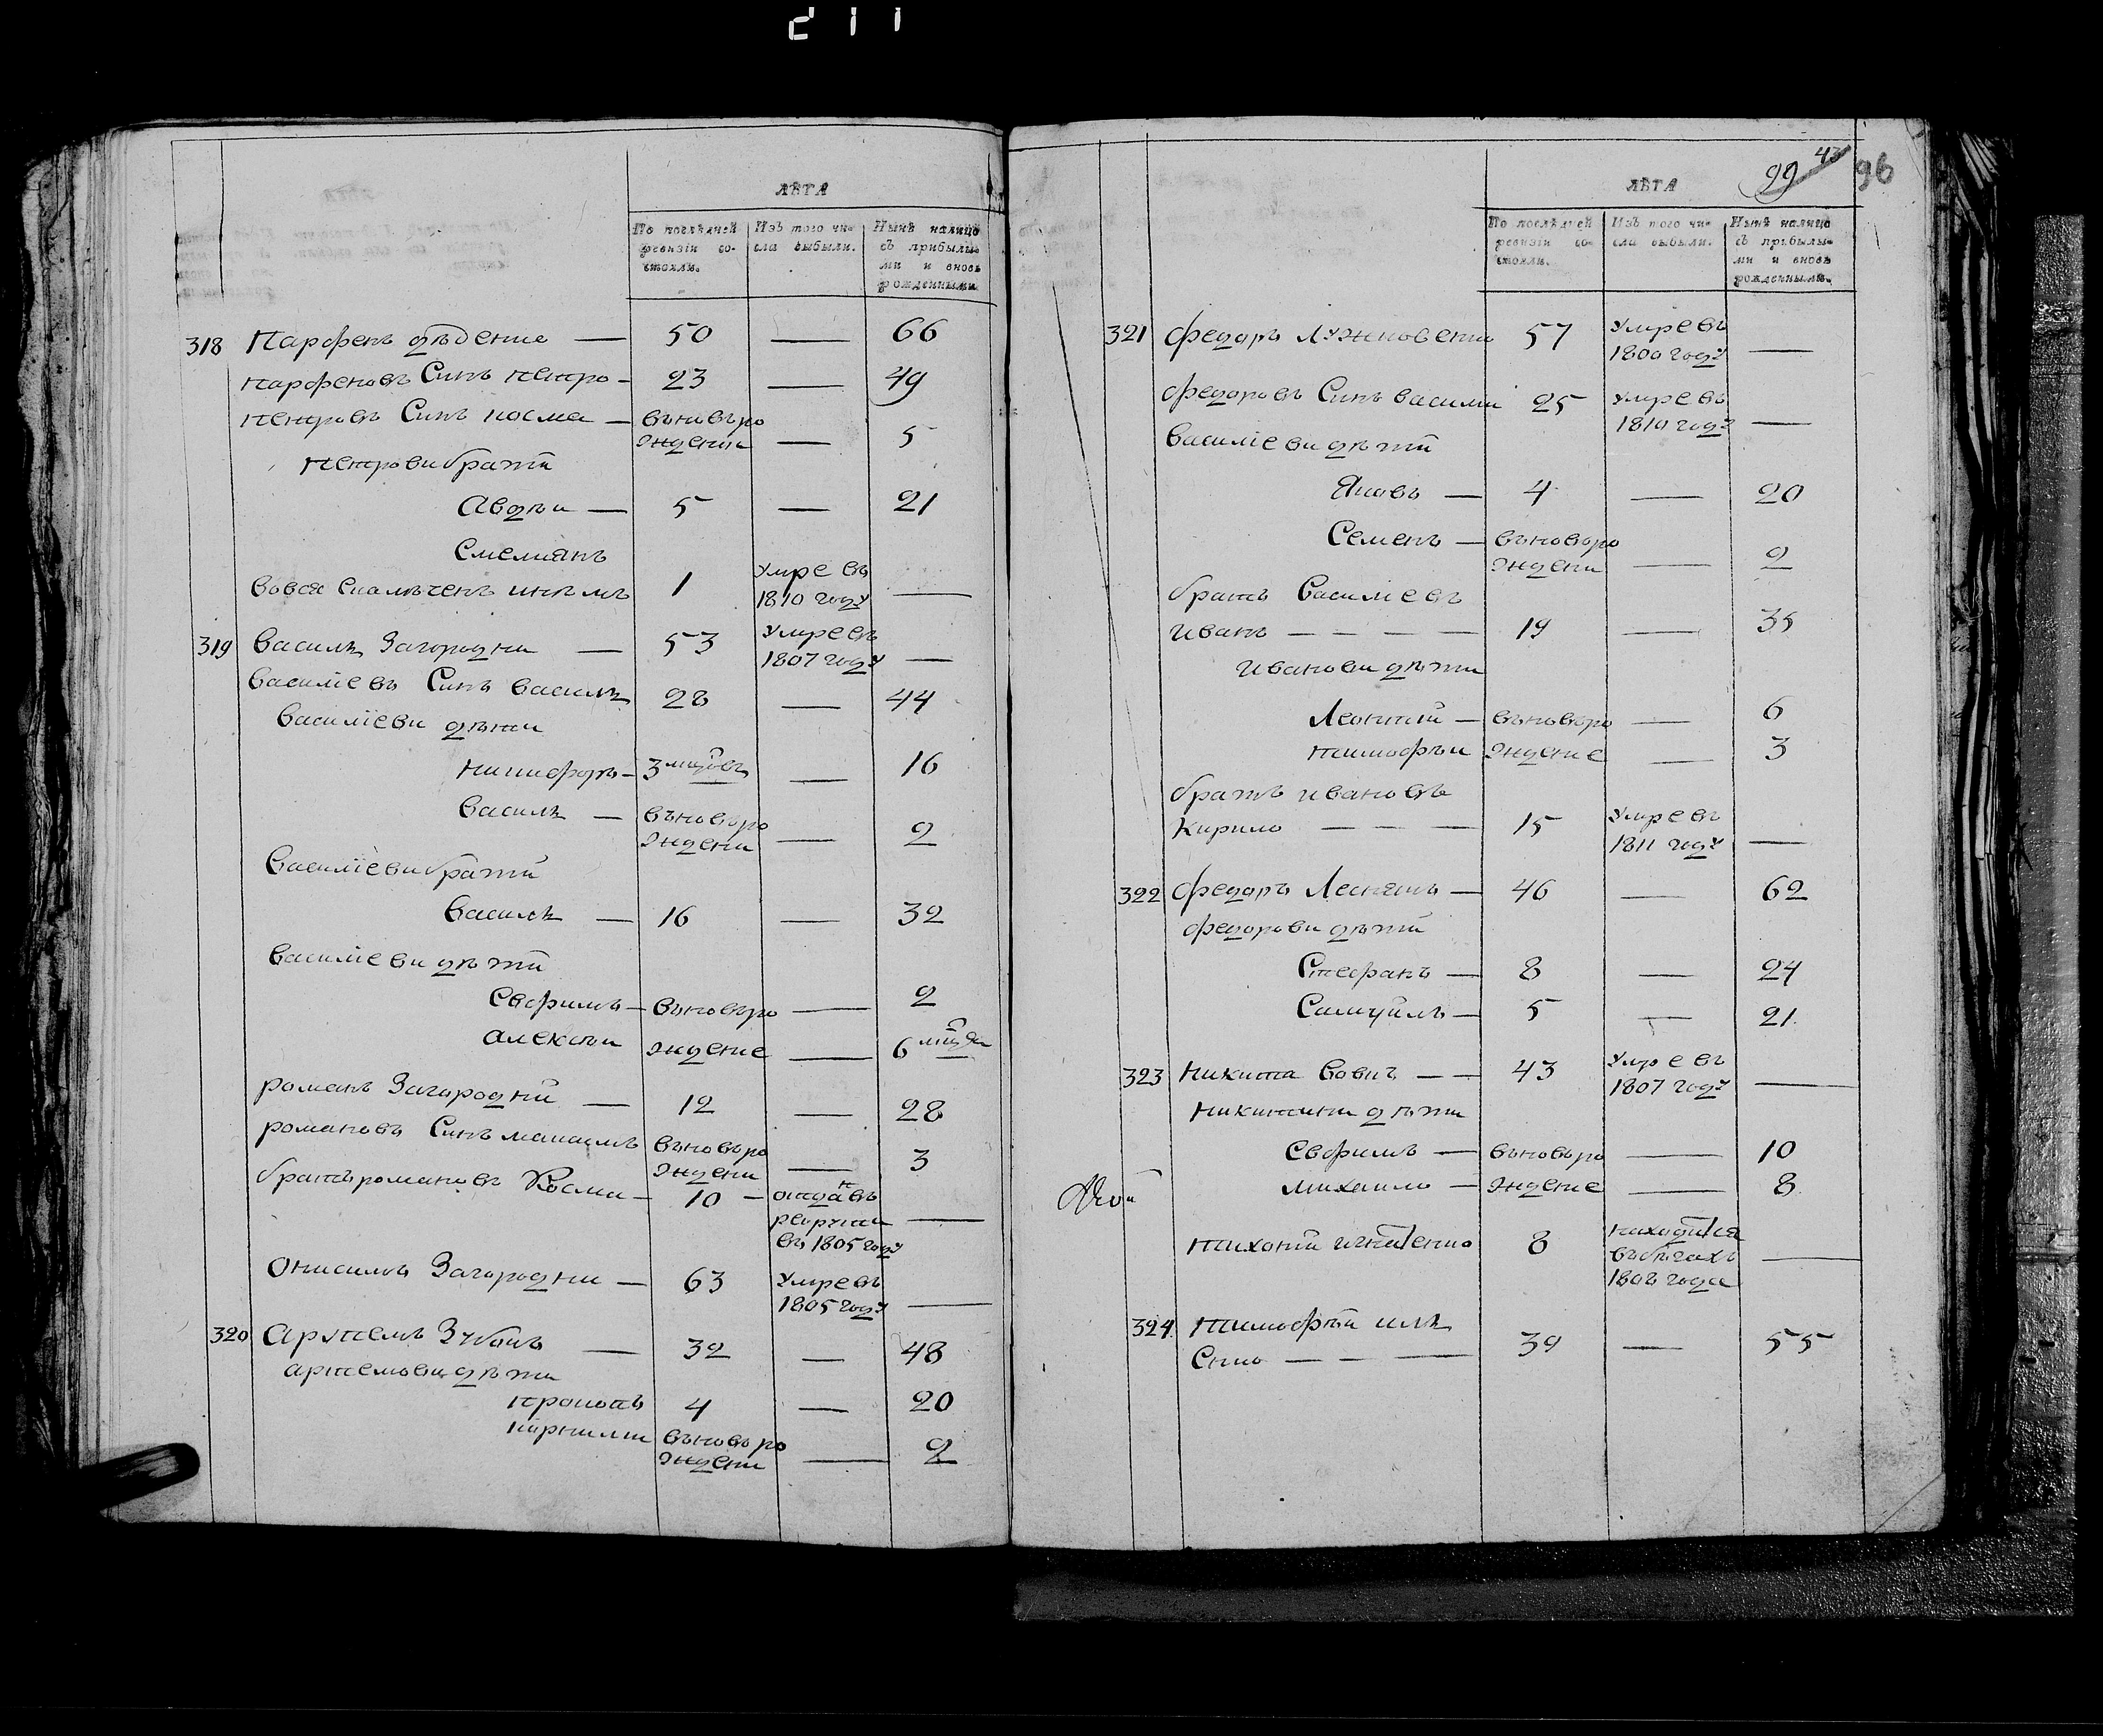 211
ЛѢТА
По послѣдней ревизіи состояли.
Изъ того числа выбыли.
Нынѣ налицо съ прибылыми и вновь рожденными
318 Парфенъ дѣденко — 50 — 66
парфеновъ Синъ петро — 23 — 49
петровъ Синъ косма — въновъро
ждении — 5
петрови брати
Авдѣи — 5 — 21
Емелианъ
1 умре въ
1810 году —
319 василь Загородни — 53 умре въ
1807 году —
василіевъ Синъ василь 28 — 44
василіеви дѣти
никифоръ — 3 мцовъ — 16
василь — въновъро
ждени — 2
василіеви брати
василь — 16 — 32
василіеви дѣти
Евфимъ — въновъро — 2
алексѣи ждение — 6 мцъ
романъ Загородни — 12 — 28
романовъ Синъ максимъ въновъро
ждени — 3
братъ романовъ Косма — 10 — отданъ въ
рекрути —
въ 1805 году
Онисимъ Загородни — 63 умре въ
1805 году —
320 Артемъ Зубъ — 32 — 48
артемови дѣти
прокопъ 4 — 20
корнили въновъро
ждени — 2
99 43 96
ЛѢТА
По послѣдней ревизіи состояли.
Изъ того числа выбыли.
Нынѣ налицо съ прибылыми и вновь рожденными.
321 федоръ 57 умре въ
1800 году —
федоровъ Синъ василии 25 умре въ
1810 году —
василіеви дѣти
Яковъ — 4 — 20
Семенъ — въновъро
ждени — 2
братъ василіевъ
иванъ — — — — 19 — 35
иванови дѣти
Леонтии — въновъро — 6
тимофѣи ждение — 3
братъ ивановъ
Кирило — — — 15 умре въ
1811 году —
322 федоръ — 46 — 62
федорови дѣти
Стефанъ — 8 — 24
Самуйлъ — 5 — 21
323 Никита Вовкъ — — 43 умре въ
1807 году —
никитини дѣти
Евфимъ — въновъро — 10
михаило — ждение — 8
тихонии игнатенко 8 находится
въбѣгахъ —
1808 года
324 тимофѣи илѣ
енко — — — 39 — 55